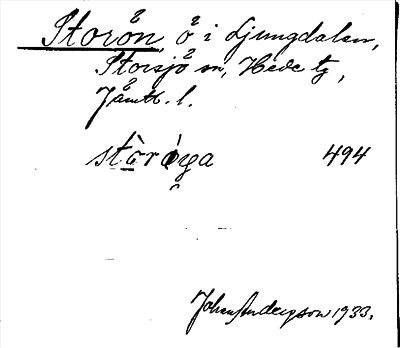 Storön, ö i Ljungdalen,
Storsjö sn, Hede tg,
Jämtl. l.
494
Johan Anderson 1933.